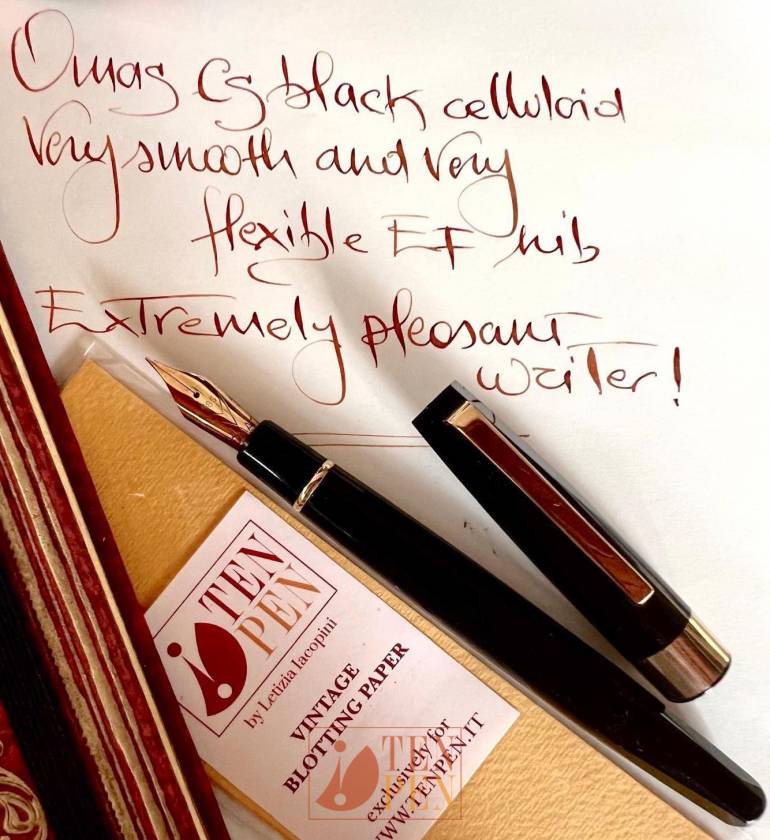 Omas CS black celluloid
Very smooth and very
flexible EF nib
Extremely pleasant
writer!
TEN
PEN
by Letizia Iacopini
VINTAGE
BLOTTING PAPER
exclusively for
WWW.TENPEN.IT
TEN
PEN